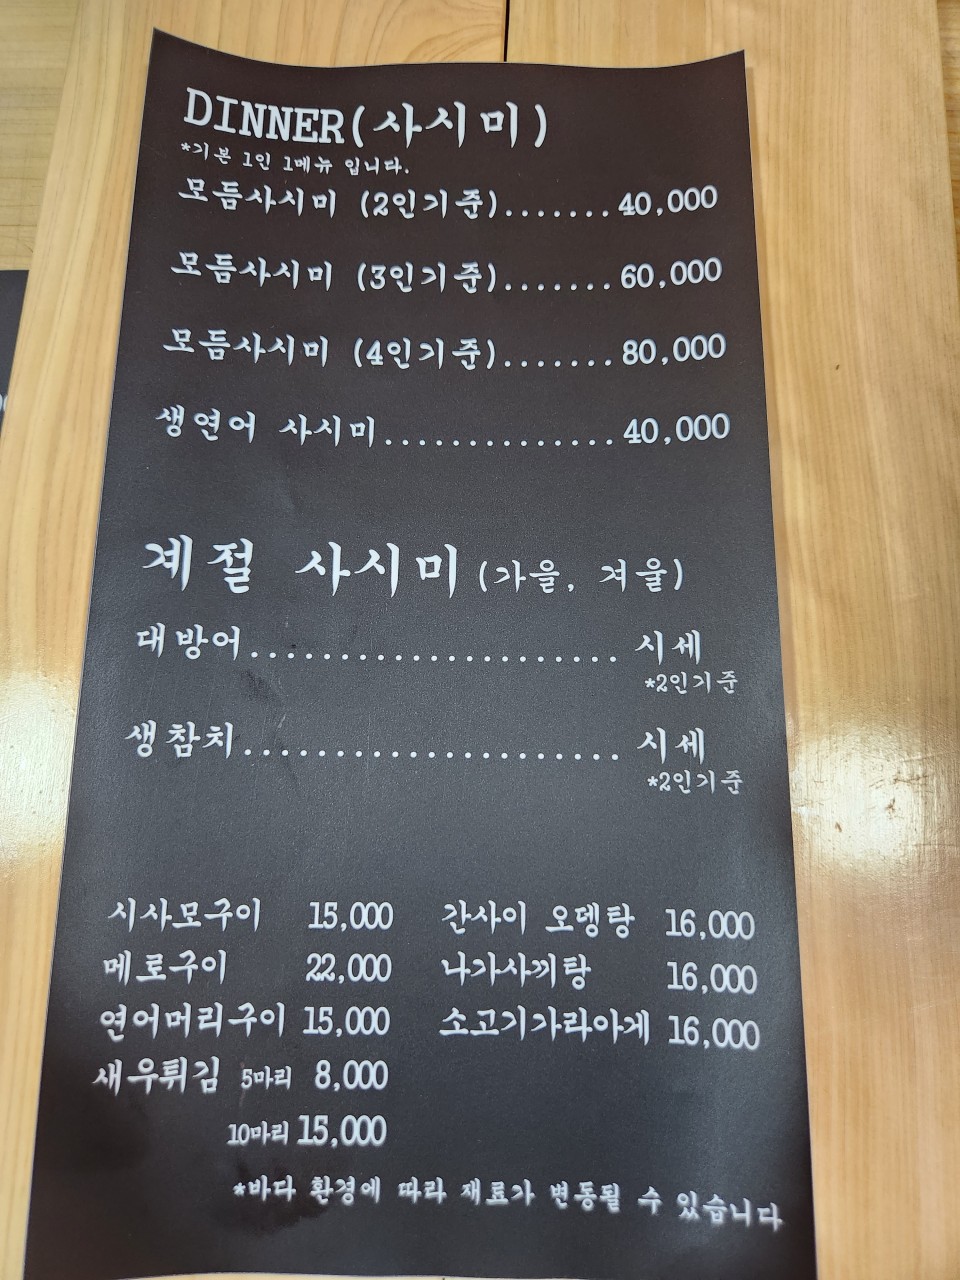 DINNER(사시미)
*기본 1인 1메뉴 입니다.
모듬사시미 (2인기준).......40,000
모듬사시미 (3인기준).......60,000
모듬사시미 (4인기준).......80,000
생연어 사시미..............40,000
계절 사시미 (가을, 겨울)
대방어...................... 시세
*2인기준
생참치...................... 시세
*2인기준
시사모구이 15,000 간사이 오뎅탕 16,000
메로구이 22,000 나가사끼탕 16,000
연어머리구이 15,000 소고기가라아게 16,000
새우튀김 5마리 8,000
10마리 15,000
*바다 환경에 따라 재료가 변동될 수 있습니다